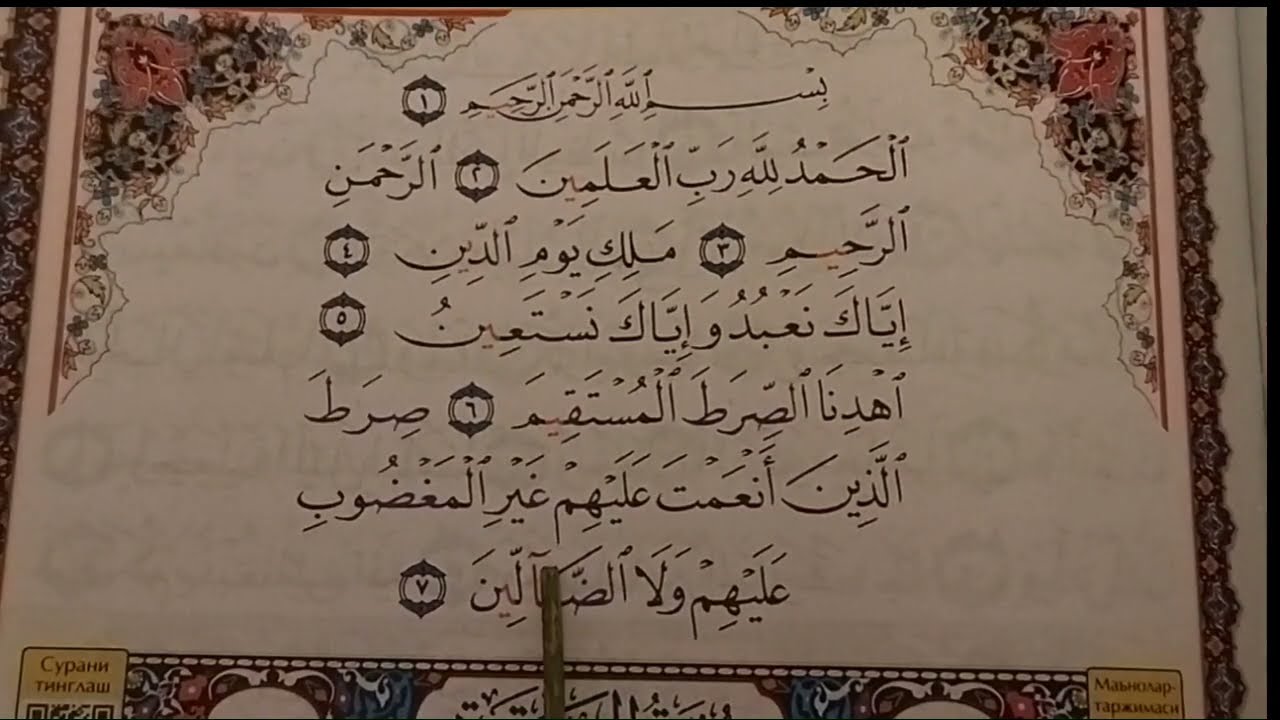 بِسْمِ ٱللَّهِ ٱلرَّحْمَٰنِ ٱلرَّحِيمِ ١
ٱلْحَمْدُ لِلَّهِ رَبِّ ٱلْعَٰلَمِينَ ٢ ٱلرَّحْمَٰنِ
ٱلرَّحِيمِ ٣ مَٰلِكِ يَوْمِ ٱلدِّينِ ٤
إِيَّاكَ نَعْبُدُ وَإِيَّاكَ نَسْتَعِينُ ٥
ٱهْدِنَا ٱلصِّرَٰطَ ٱلْمُسْتَقِيمَ ٦ صِرَٰطَ
ٱلَّذِينَ أَنْعَمْتَ عَلَيْهِمْ غَيْرِ ٱلْمَغْضُوبِ
عَلَيْهِمْ وَلَا ٱلضَّآلِّينَ ٧
Сурани
тинглаш
Маънолар-
таржимаси